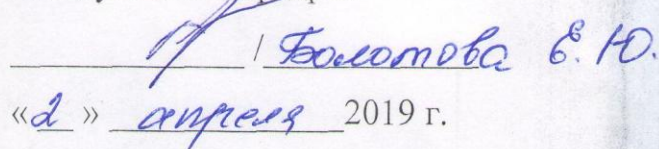 / Болотова Е. Ю.
«2» апреля 2019 г.